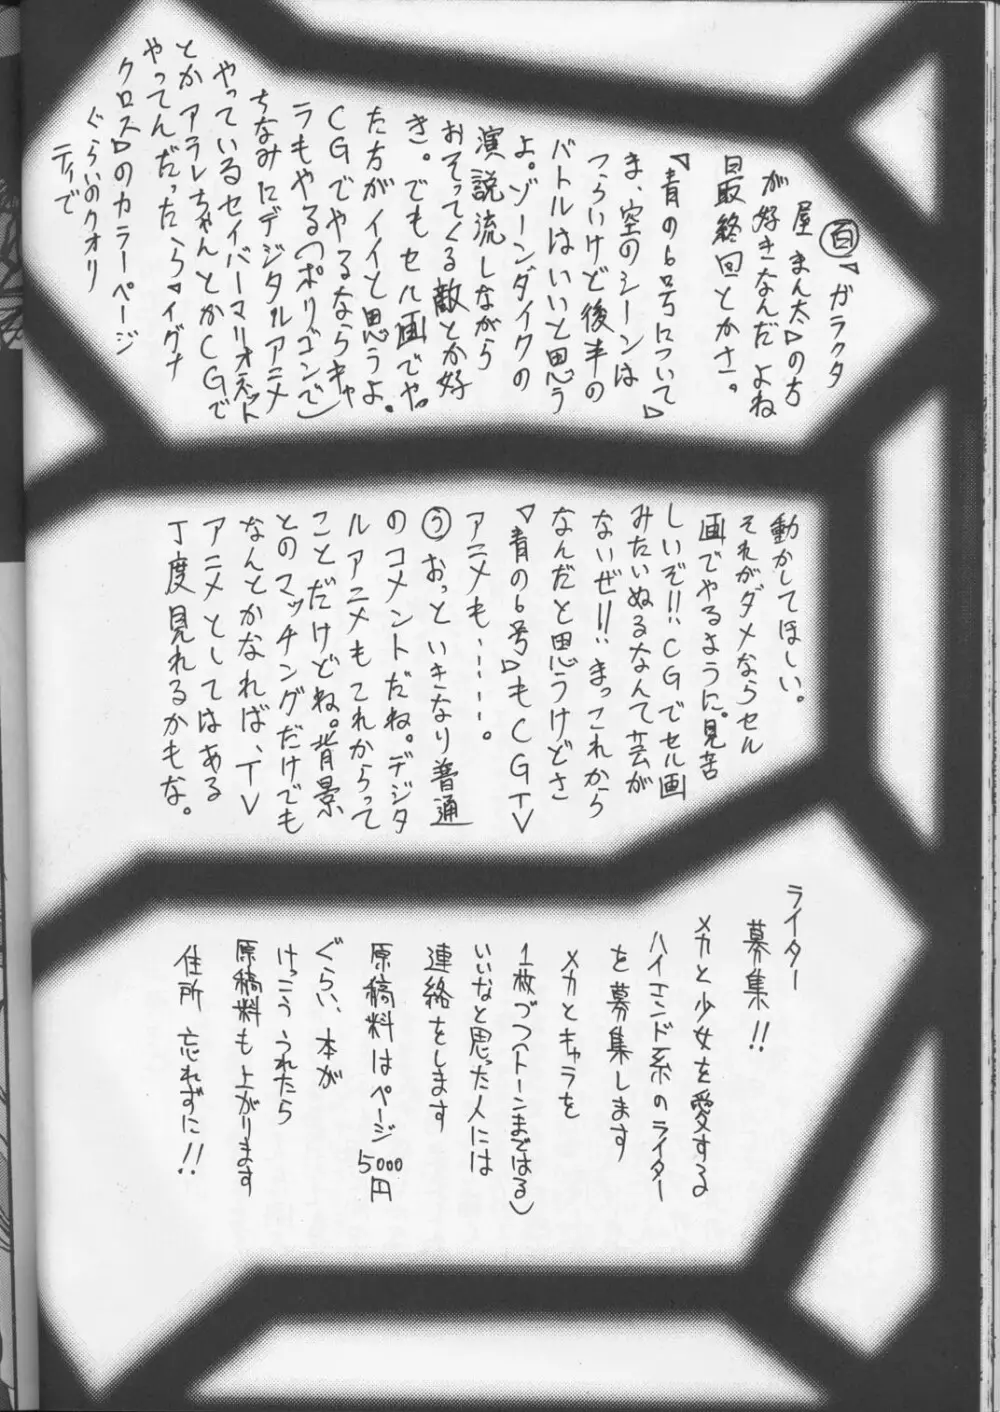 百 「ガラクタ
屋まん太」の方
が好きなんだよね
最終回とかさ。
「青の6号について」
ま、空のシーンは
つらいけど後半の
バトルはいいと思う
よ。ゾーンダイクの
演説流しながら
おそってくる敵とか好
き。でもセル画でや
った方がイイと思うよ。
CGでやるならキャ
ラもやる(ポリゴンで)
ちなみにデジタルアニメ
やっているセイバーマリオネット
とかアラレちゃんとかCGで
やってんだったら「イグナ
クロス」のカラーページ
ぐらいのクオリ
ティで
動かしてほしい。
それがダメならセル
画でやるように。見苦
しいぞ!!CGでセル画
みたいぬるなんて芸が
ないぜ!!まっこれから
なんだと思うけどさ
「青の6号」もCGTV
アニメも・・・・・。
う おっといきなり普通
のコメントだね。デジタ
ルアニメもこれからって
ことだけどね。背景
とのマッチングだけでも
なんとかなれば、TV
アニメとしてはある
丁度見れるかもな。
ライター
募集!!
メカと少女を愛する
ハイエンド系のライター
を募集します
メカとキャラを
1枚づつ(トーンまではる)
いいなと思った人には
連絡をします
原稿料はページ
5000円
ぐらい、本が
けっこううれたら
原稿料も上がります
住所 忘れずに!!